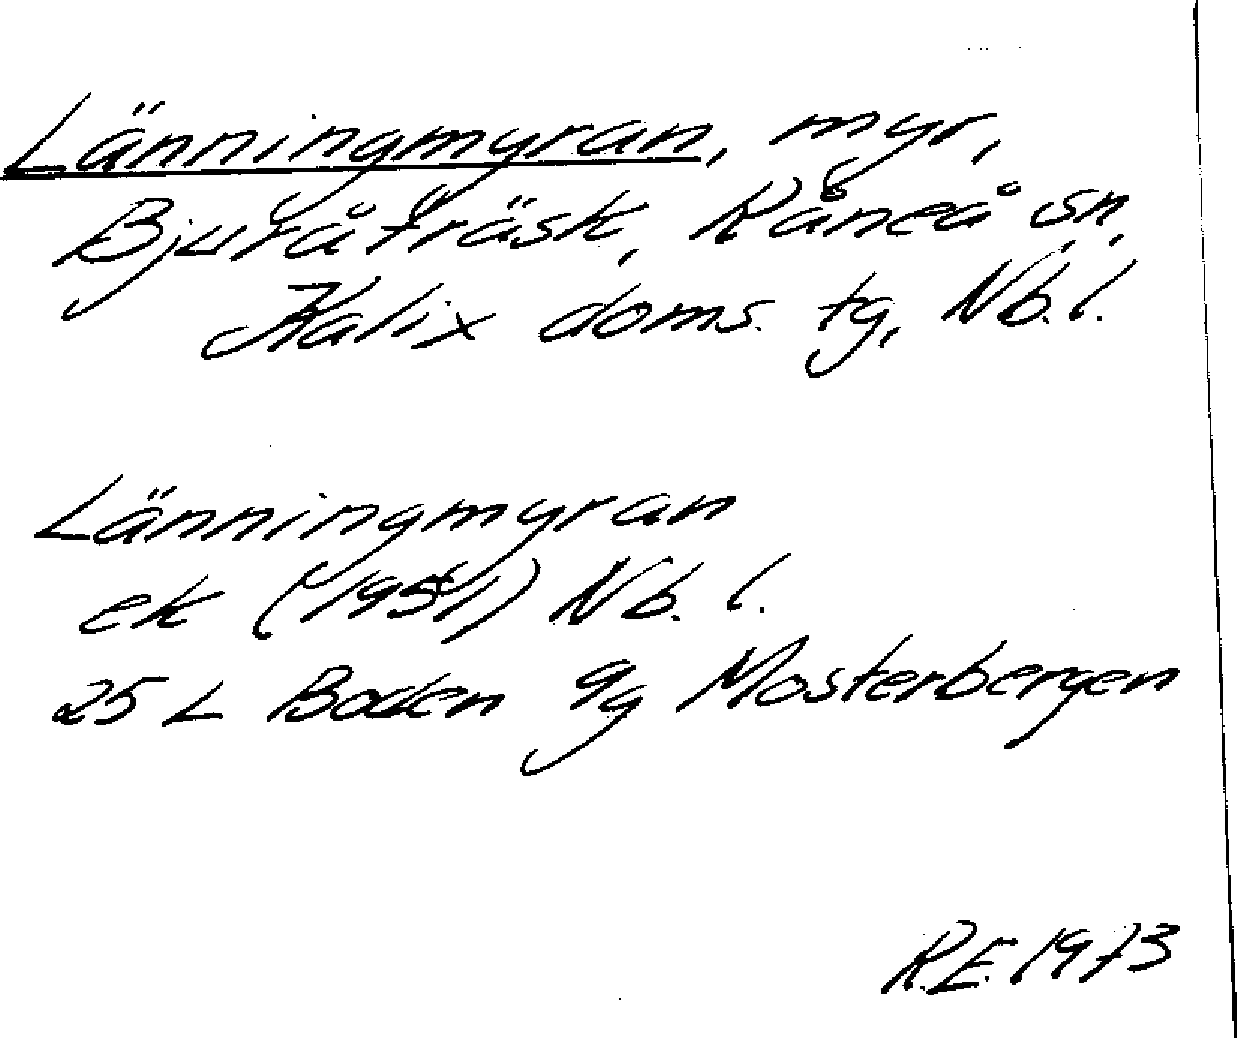 Länningmyran, myr,
Bjuråträsk, Råneå sn,
Kalix doms. tg, Nb. l.
Länningmyran
ek (1951) Nb. l.
25 L Boden 9g Mosterbergen
R.E. 1973